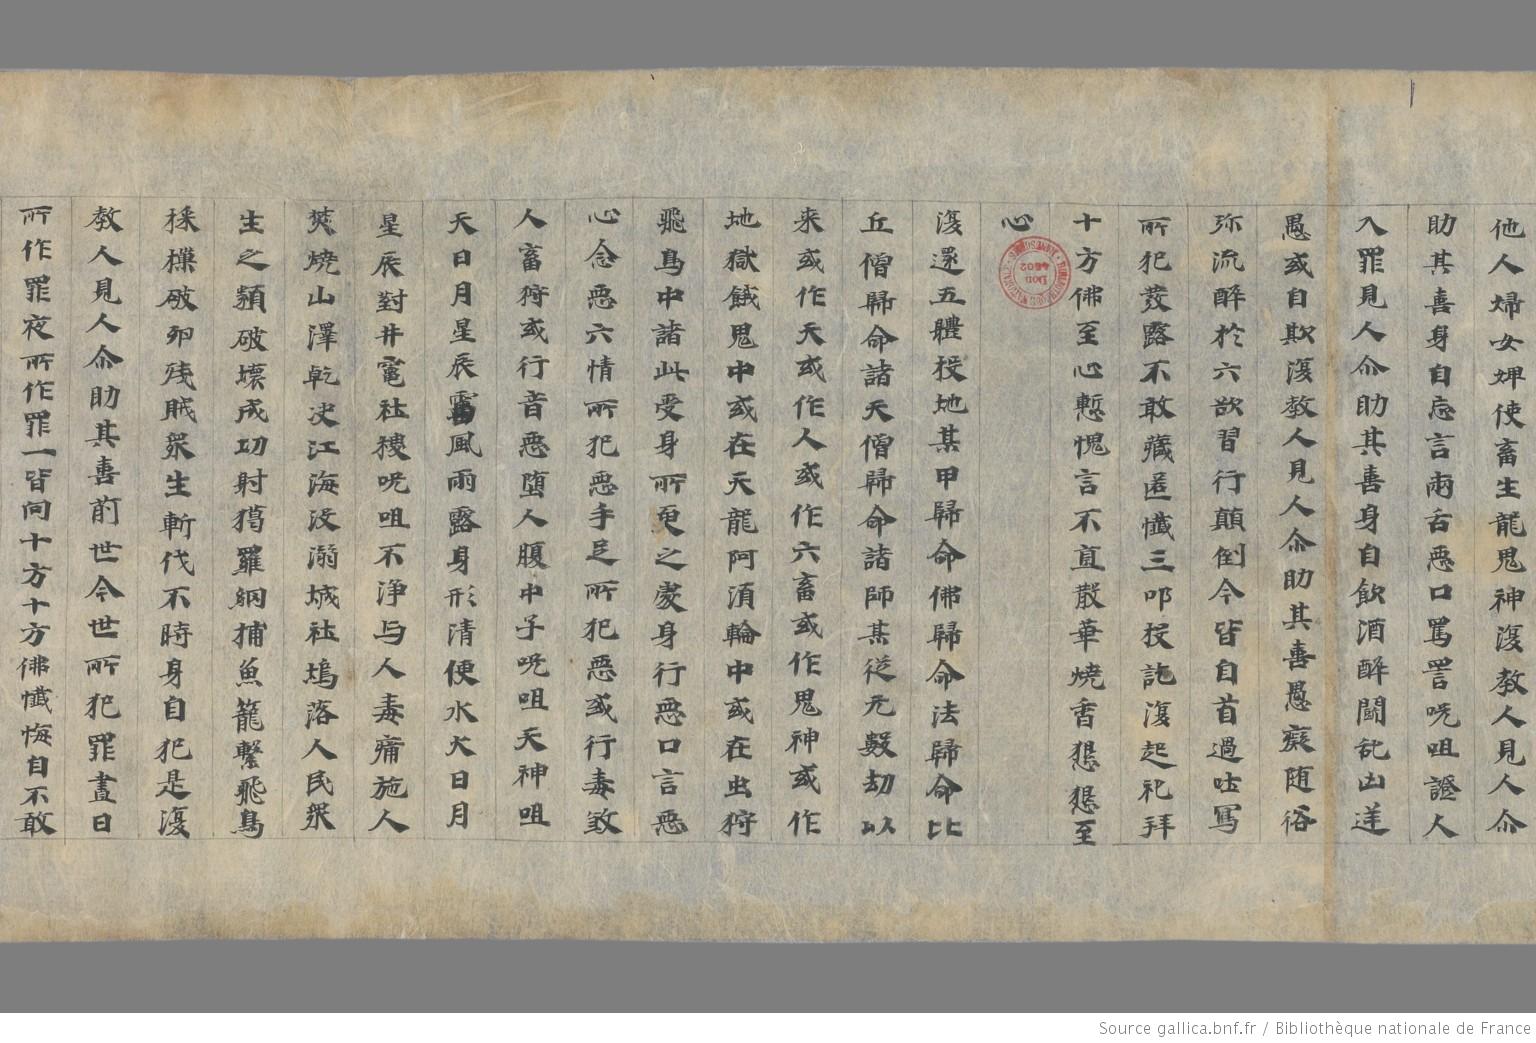 他人婦女婢使畜生龍鬼神復教人見人尒
助其喜身自忘言兩舌惡口罵詈呪咀證人
入罪見人尒助其喜身自飲酒醉鬪乱凶逆
愚或自欺復教人見人尒助其喜愚癡随俗
弥流醉於六欲習行顛倒今皆自首過
所犯發露不敢藏匿懺三叩投訖復起礼拜
十方佛至心慙愧言不直散華燒香懇懇至
心
復還五體投地某甲歸命佛歸命法歸命比
丘僧歸命諸天僧歸命諸師某從无數劫以
来或作天或作人或作六畜或作鬼神或作
地獄餓鬼中或在天龍阿湏輪中或在虫狩
飛鳥中諸此受身所更之處身行惡口言惡
心念惡六情所犯惡手足所犯惡或行毒致
人畜狩或行音惡堕人腹中子呪咀天神咀
天日月星辰風雨露身形清便水火日月
星辰對井竃社稷呪咀不浄与人毒痛施人
焚燒山澤乾决江海沒溺城社塢落人民衆
生之類破壞成功射獦羅網捕魚籠繫飛鳥
採樔破卵殘賊衆生斬伐不時身自犯是復
教人見人尒助其喜前世今世所犯罪晝日
所作罪夜所作罪一皆向十方十方佛懺悔自不敢
Source gallica.bnf.fr / Bibliothèque nationale de France